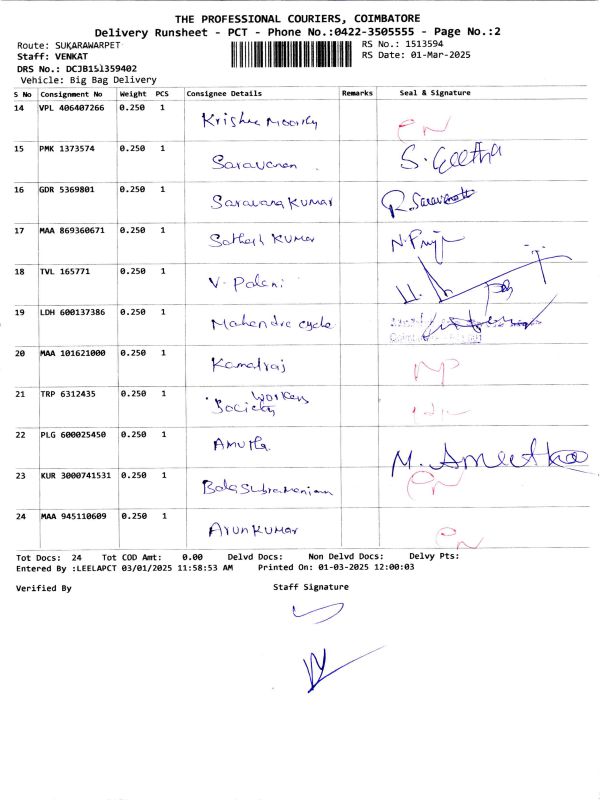 THE PROFESSIONAL COURIERS, COIMBATORE
Delivery Runsheet - PCT - Phone No.:0422-3505555 - Page No.:2
Route: SUKARAWARPET RS No.: 1513594
Staff: VENKAT RS Date: 01-Mar-2025
DRS No.: DCJB151359402
Vehicle: Big Bag Delivery
S No Consignment No Weight PCS Consignee Details Remarks Seal & Signature
14 VPL 406407266 0.250 1 Krishna Moorthy
15 PMK 1373574 0.250 1 Saravanan S. Geetha
16 GDR 5369801 0.250 1 Saravana Kumar R. Saravanan
17 MAA 869360671 0.250 1 Sathish Kumar
18 TVL 165771 0.250 1 V. Palani
19 LDH 600137386 0.250 1 Mahendra cycle
20 MAA 101621000 0.250 1 Kamalraj
21 TRP 6312435 0.250 1 Workers
Society
22 PLG 600025450 0.250 1 Amutha
23 KUR 3000741531 0.250 1 Balasubramaniam
24 MAA 945110609 0.250 1 Arun Kumar
Tot Docs: 24 Tot COD Amt: 0.00 Delvd Docs: Non Delvd Docs: Delvy Pts:
Entered By :LEELAPCT 03/01/2025 11:58:53 AM Printed On: 01-03-2025 12:00:03
Verified By Staff Signature